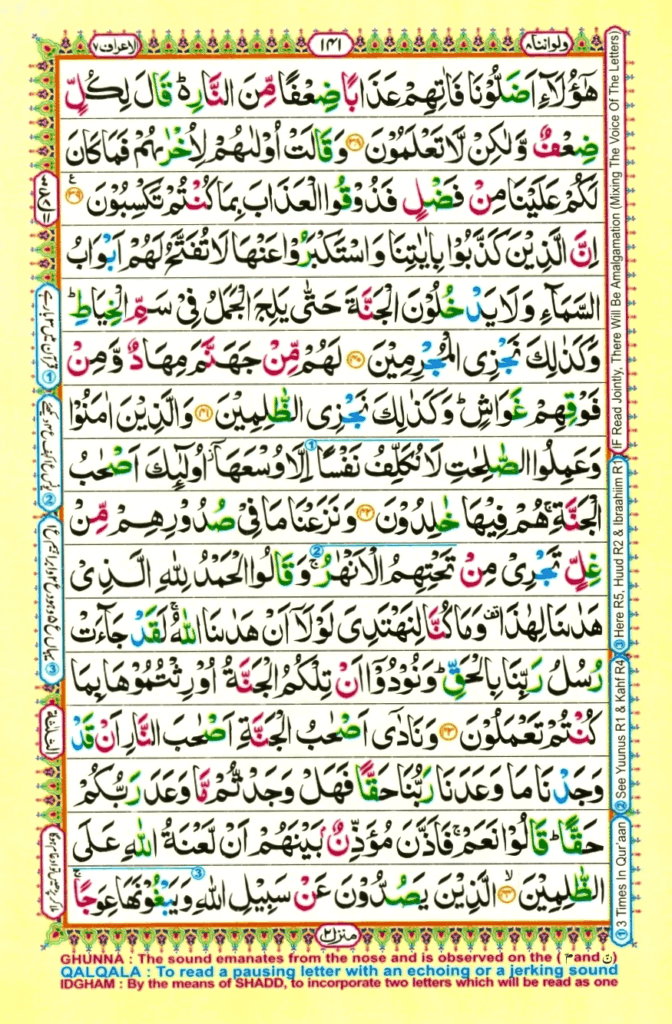 ولواننا ٨
١٤١
الاعراف ٧
هٰۤؤُلَآءِ اَضَلُّوْنَا فَاٰتِهِمْ عَذَابًا ضِعْفًا مِّنَ النَّارِ ؕ قَالَ لِكُلٍّ
ضِعْفٌ وَّلٰكِنْ لَّا تَعْلَمُوْنَ ﴿۳۸﴾ وَقَالَتْ اُوْلٰىهُمْ لِاُخْرٰىهُمْ فَمَا كَانَ
لَكُمْ عَلَيْنَا مِنْ فَضْلٍ فَذُوْقُوا الْعَذَابَ بِمَا كُنْتُمْ تَكْسِبُوْنَ ﴿۳۹﴾
اِنَّ الَّذِيْنَ كَذَّبُوْا بِاٰيٰتِنَا وَاسْتَكْبَرُوْا عَنْهَا لَا تُفَتَّحُ لَهُمْ اَبْوَابُ
السَّمَآءِ وَلَا يَدْخُلُوْنَ الْجَنَّةَ حَتّٰى يَلِجَ الْجَمَلُ فِيْ سَمِّ الْخِيَاطِ ؕ
وَكَذٰلِكَ نَجْزِى الْمُجْرِمِيْنَ ﴿۴۰﴾ لَهُمْ مِّنْ جَهَنَّمَ مِهَادٌ وَّمِنْ
فَوْقِهِمْ غَوَاشٍ ؕ وَكَذٰلِكَ نَجْزِى الظّٰلِمِيْنَ ﴿۴۱﴾ وَالَّذِيْنَ اٰمَنُوْا
وَعَمِلُوا الصّٰلِحٰتِ لَا نُكَلِّفُ نَفْسًا اِلَّا وُسْعَهَاۤ اُولٰٓئِكَ اَصْحٰبُ
الْجَنَّةِ ۚ هُمْ فِيْهَا خٰلِدُوْنَ ﴿۴۲﴾ وَنَزَعْنَا مَا فِيْ صُدُوْرِهِمْ مِّنْ
غِلٍّ تَجْرِيْ مِنْ تَحْتِهِمُ الْاَنْهٰرُ ۚ وَقَالُوا الْحَمْدُ لِلّٰهِ الَّذِيْ
هَدٰىنَا لِهٰذَا وَمَا كُنَّا لِنَهْتَدِيَ لَوْلَاۤ اَنْ هَدٰىنَا اللّٰهُ ۚ لَقَدْ جَآءَتْ
رُسُلُ رَبِّنَا بِالْحَقِّ ؕ وَنُوْدُوْۤا اَنْ تِلْكُمُ الْجَنَّةُ اُوْرِثْتُمُوْهَا بِمَا
كُنْتُمْ تَعْمَلُوْنَ ﴿۴۳﴾ وَنَادٰۤى اَصْحٰبُ الْجَنَّةِ اَصْحٰبَ النَّارِ اَنْ قَدْ
وَجَدْنَا مَا وَعَدَنَا رَبُّنَا حَقًّا فَهَلْ وَجَدْتُّمْ مَّا وَعَدَ رَبُّكُمْ
حَقًّا ؕ قَالُوْا نَعَمْ ۚ فَاَذَّنَ مُؤَذِّنٌۢ بَيْنَهُمْ اَنْ لَّعْنَةُ اللّٰهِ عَلَى
الظّٰلِمِيْنَ ﴿۴۴﴾ الَّذِيْنَ يَصُدُّوْنَ عَنْ سَبِيْلِ اللّٰهِ وَيَبْغُوْنَهَا عِوَجًا
منزل ٢
IF Read Jointly, There Will Be Amalgamation (Mixing The Voice Of The Letters)
① 3 Times In Qur'aan ② See Yuunus R1 & Kahf R4 ③ Here R5, Huud R2 & Ibraahiim R1
GHUNNA : The sound emanates from the nose and is observed on the ( م and ن )
QALQALA : To read a pausing letter with an echoing or a jerking sound
IDGHAM : By the means of SHADD, to incorporate two letters which will be read as one